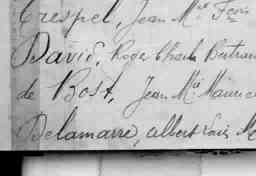 Crespel, Jean Mie
David, Roger Charles Bertran
de Bost, Jean Mie Mauric
Delamarre, Albert Louis M